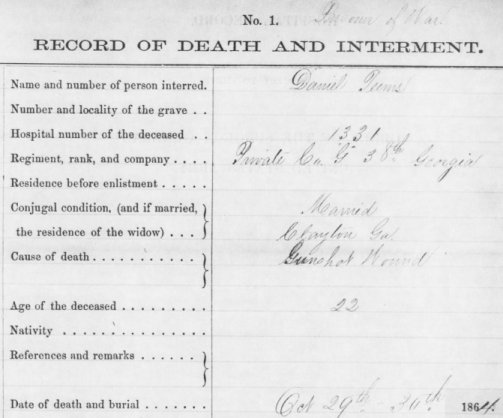 No. 1. Prisoner of War.
RECORD OF DEATH AND INTERMENT.
Name and number of person interred. Daniel
Number and locality of the grave . .
Hospital number of the deceased . . 1331
Regiment, rank, and company . . . . Private Co. G 38th Georgia
Residence before enlistment . . . . .
Conjugal condition, (and if married, Married
the residence of the widow) . . . Clayton Ga
Cause of death . . . . . . . . . . . Gunshot Wound
Age of the deceased . . . . . . . . . 22
Nativity . . . . . . . . . . . . . . .
References and remarks . . . . . .
Date of death and burial . . . . . . . Oct 29th - 30th 1864.